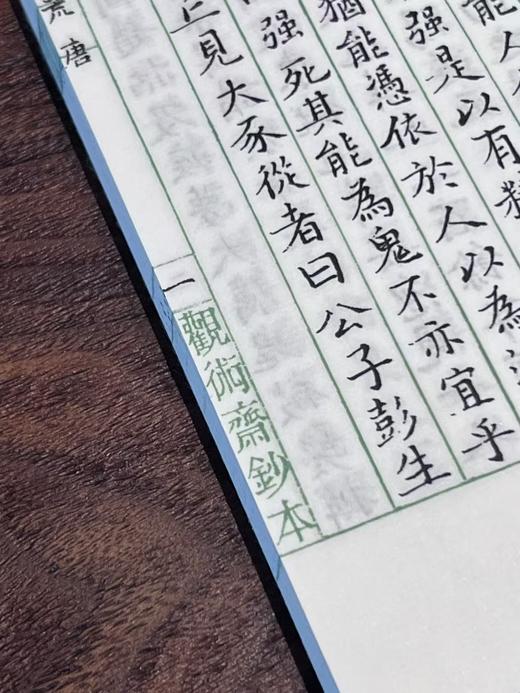 能人
強是以有精
猶能憑依於人以為
强死其能為鬼不亦宜乎
丘見大豕從者曰公子彭生
荒唐
一
觀術齋鈔本